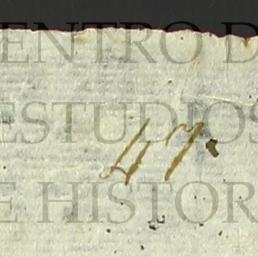 ENTRO D
ESTUDIOS
47
E HISTOR